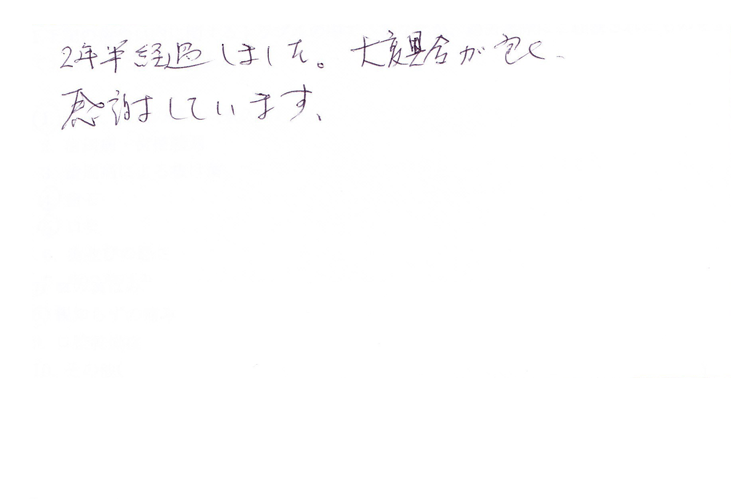 2年半経過しました。大変具合が良く、
感謝しています、